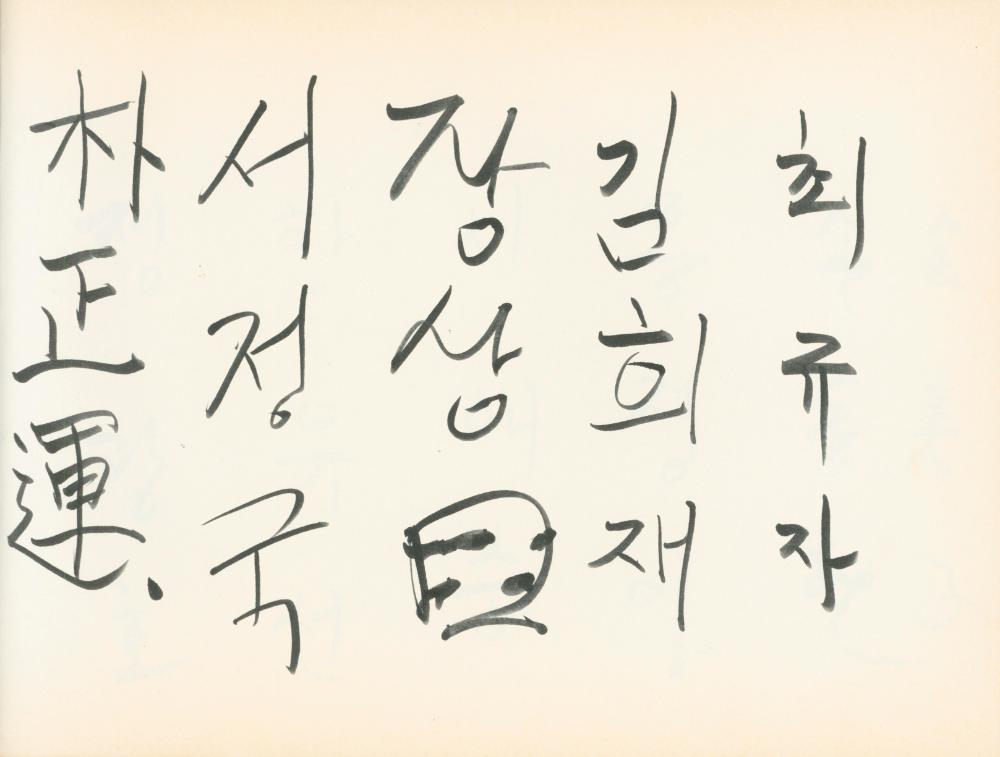 최규자
김희재
장상
서정국
朴正運.